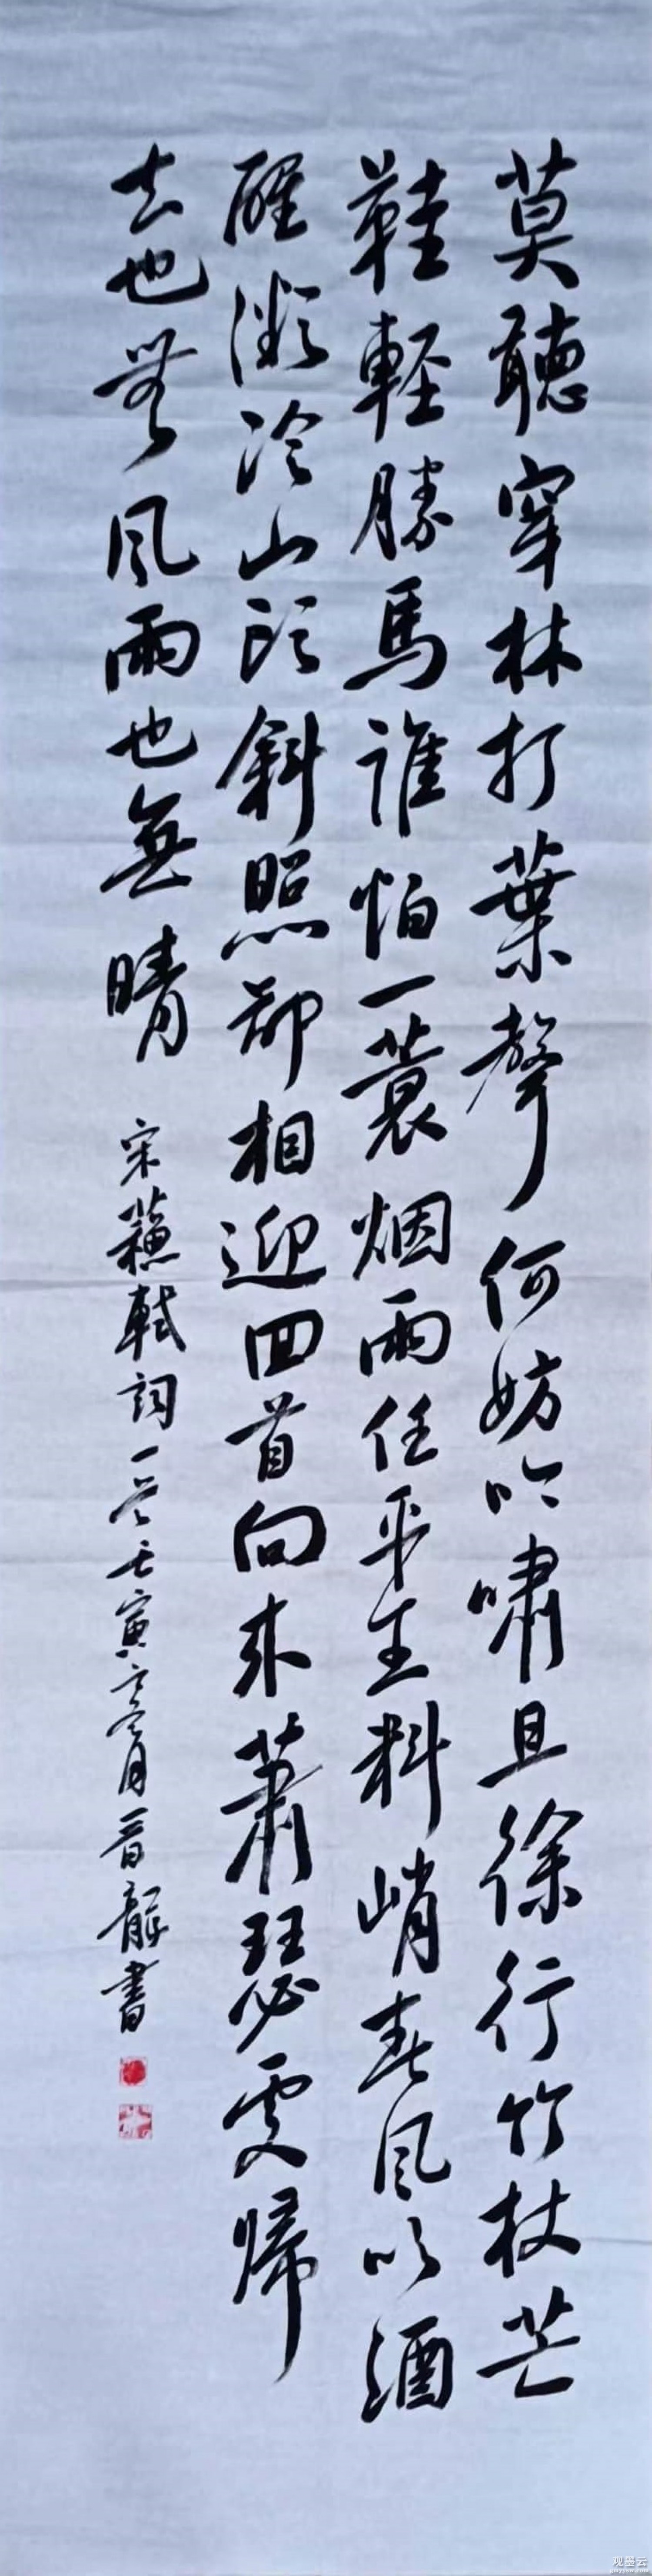 莫聽穿林打葉聲何妨吟嘯且徐行竹杖芒
鞋輕勝馬誰怕一蓑烟雨任平生料峭春風吹酒
醒微冷山頭斜照却相迎回首向来蕭瑟處歸
去也無風雨也無晴
宋蘇軾詞一首壬寅年月晋龍書
观墨云